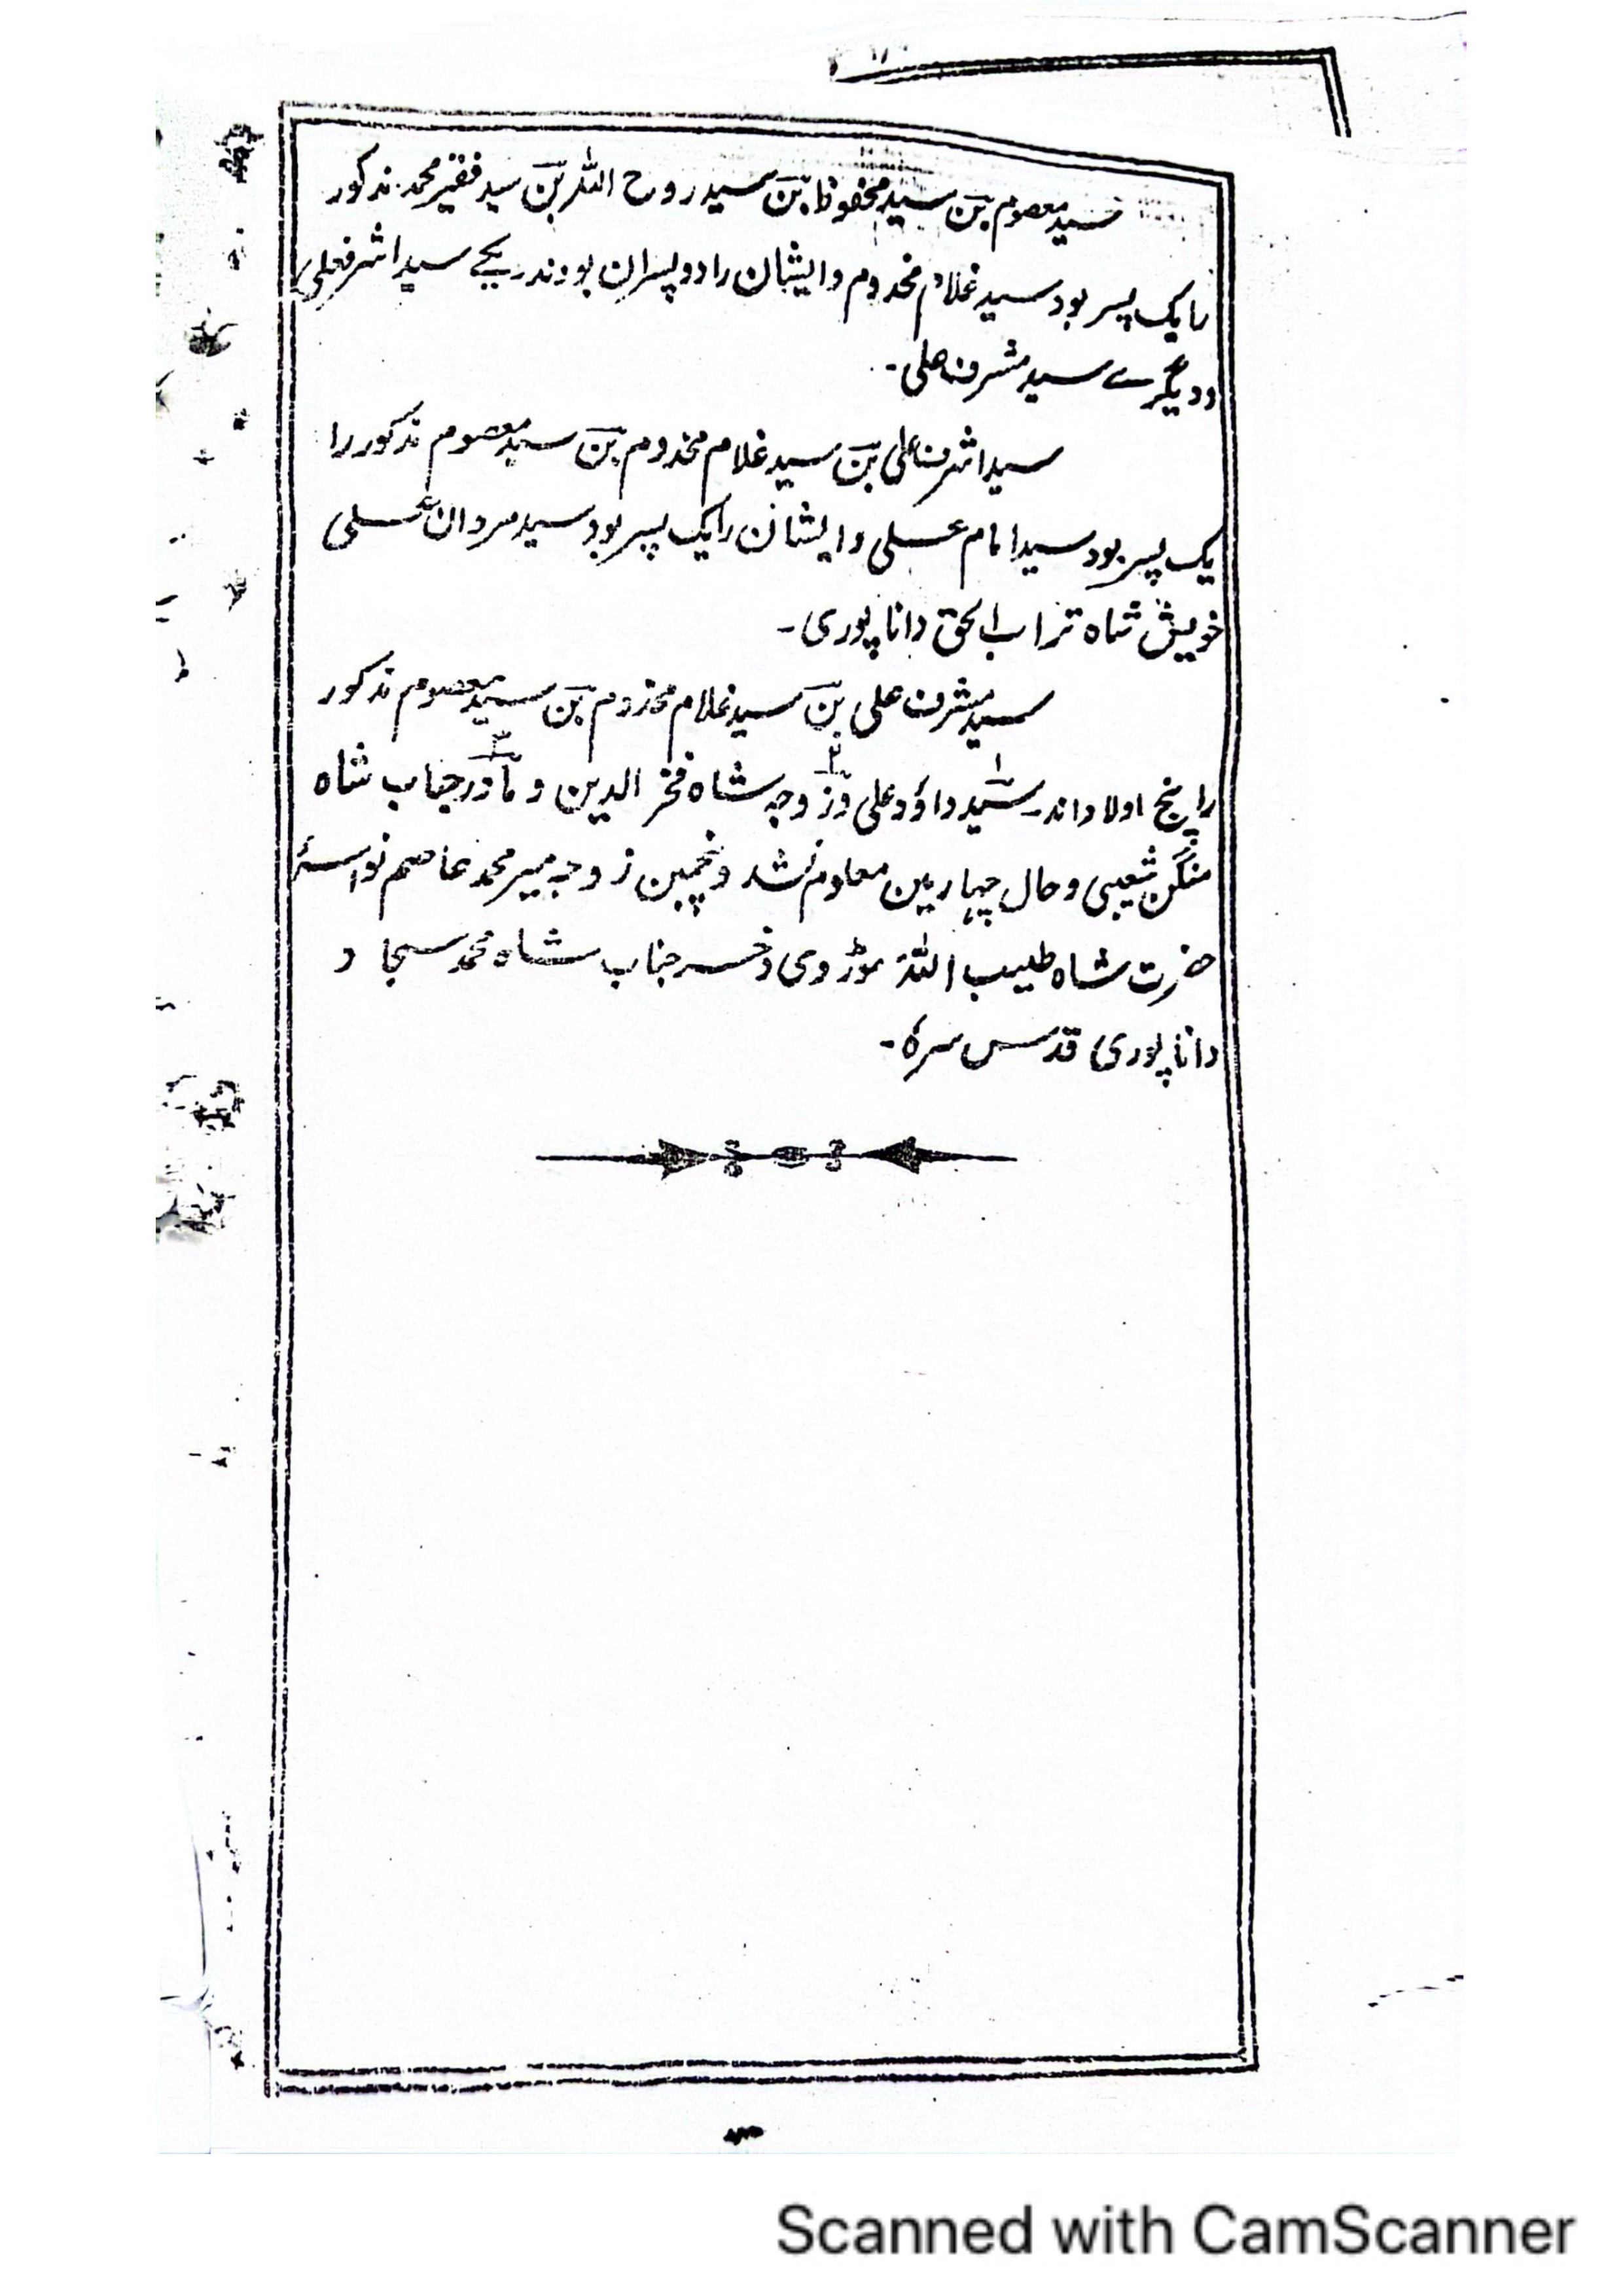 سید معصوم بن سید محفوظ بن سید روح اللہ بن سید فقیر محمد مذکور
را یک پسر بود سید غلام مخدوم وایشان را دو پسران بودند یکے سید اشرف علی
ودیگرے سید مشرف علی۔
سید اشرف علی بن سید غلام مخدوم بن سید معصوم مذکور را
یک پسر بود سید امام علی وایشان را یک پسر بود سید مردان علی
خویش شاہ تراب الحق داناپوری۔
سید مشرف علی بن سید غلام مخدوم بن سید معصوم مذکور
را پنج اولاد اند۔ سید داؤد علی وزوجہ شاہ فخر الدین و مادر جناب شاہ
منگن شعیبی وحال چہارمین معلوم نشد وپنجمین زوجہ میر محمد عاصم نواسۂ
حضرت شاہ طبیب اللہ موڑوی وخسر جناب شاہ محمد سجاد
داناپوری قدس سرہ۔
Scanned with CamScanner